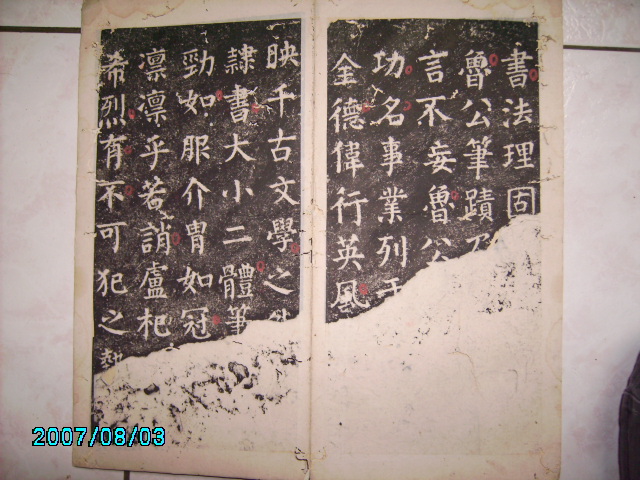 書法理固
魯公筆蹟
言不妄魯公
功名事業列
全德偉行英風
映千古文學之
隸書大小二體筆
勁如服介胄如冠
凛凛乎若誚盧杞
希烈有不可犯之
2007/08/03